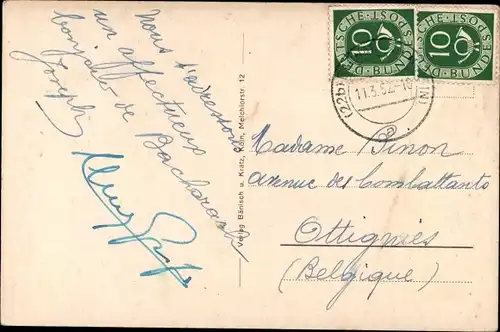 Nous t'adressons
un affectueux
bonjour de Bacharach
Joseph
Verlag Bänisch u. Kratz, Köln, Melchiorstr. 12
DEUTSCHE BUNDESPOST
10
DEUTSCHE BUNDESPOST
10
(22b)
11.3.52-18
a
Madame Pinon
avenue des Combattants
Ottignies
(Belgique)